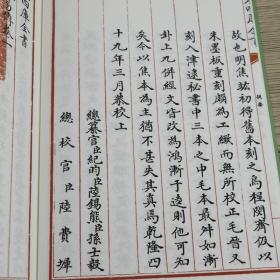 故也明焦竑初得舊本刻之烏程閔齊伋以
朱墨板重刻頗為工緻而無所校正毛晉又
刻入津逮秘書中三本之中毛本最舛如漸
卦上九併經文皆改為鴻漸于逵則他可知
矣今以焦本為主猶不甚失其真焉乾隆四
十九年三月恭校上
總纂官臣紀昀臣陸錫熊臣孫士毅
總校官臣陸費墀